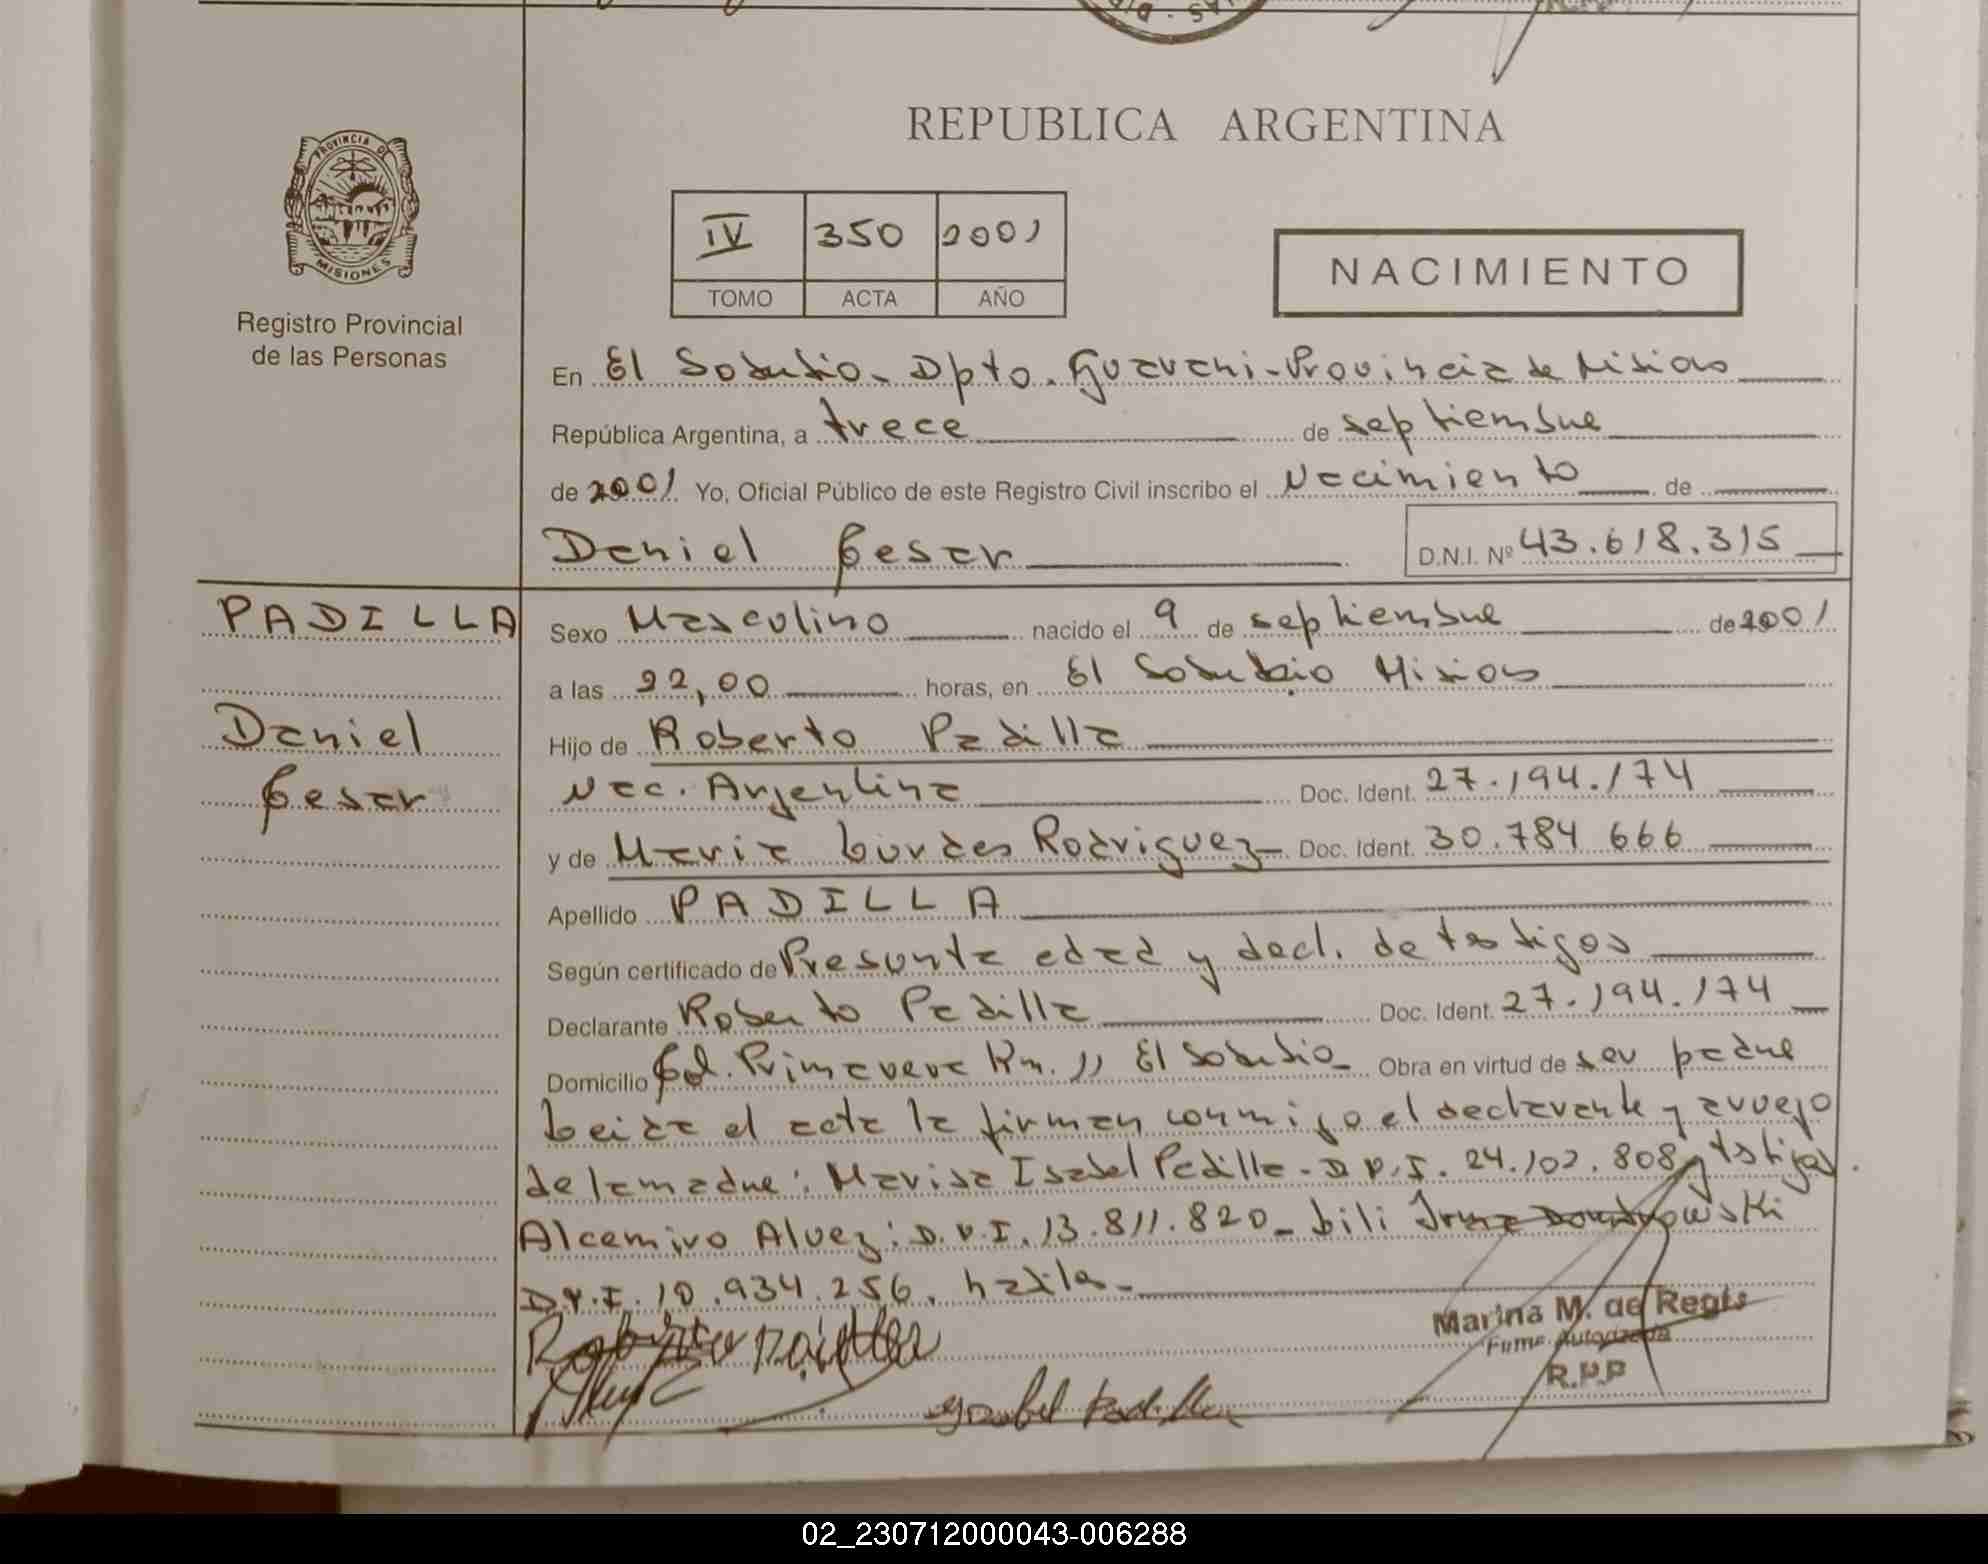 REPUBLICA ARGENTINA
PROVINCIA DE
MISIONES
Registro Provincial
de las Personas
IV 350 2001
TOMO ACTA AÑO
NACIMIENTO
En El Soberbio - Dpto. Guarani - Provincia de Misiones
República Argentina, a trece de septiembre
de 2001 Yo, Oficial Público de este Registro Civil inscribo el Nacimiento de
Daniel Cesar D.N.I. Nº 43.618.315
PADILLA
Daniel
Cesar
Sexo Masculino nacido el 9 de septiembre de 2001
a las 22,00 horas, en El Soberbio Misiones
Hijo de Roberto Padilla
Nac. Argentina Doc. Ident. 27.194.174
y de Maria Lurdes Rodriguez Doc. Ident. 30.784 666
Apellido PADILLA
Según certificado de Presunta edad y decl. de testigos
Declarante Roberto Padilla Doc. Ident. 27.194.174
Domicilio Col. Primavera Km. 11 El Soberbio Obra en virtud de ser padre
Leida el acta la firman conmigo el declarante y
de la madre: Isabel Padilla - D.N.I. 24.102.808 y testigos
Alcemiro Alvez: D.N.I. 13.811.820 - Lili
D.N.I. 10.934.256.
Roberto Padilla
Isabel Padilla
Marina M. de Regis
Firma Autorizada
R.P.P
02_230712000043-006288